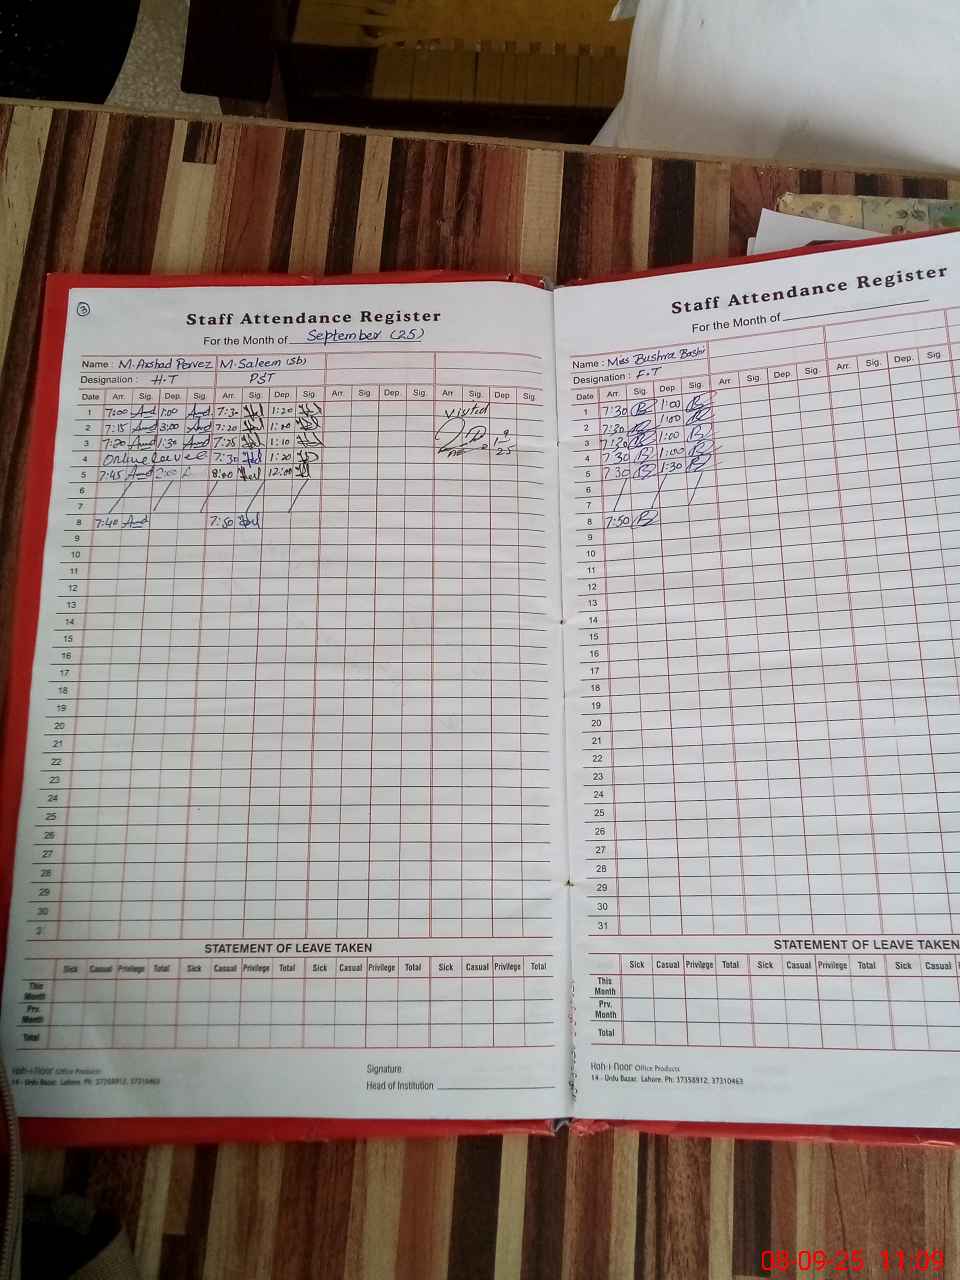 3
Staff Attendance Register
For the Month of September (25)
Name : M. Arshad Parvez M. Saleem (Sb)
Designation : H.T PST
Date Arr. Sig. Dep. Sig. Arr. Sig. Dep. Sig. Arr. Sig. Dep. Sig. Arr Sig. Dep Sig.
1 7:00 1:00 7:30 1:20 Visited
2 7:15 3:00 7:20 1:20
3 7:20 1:30 7:25 1:10 1-9/25
4 Online leave 7:30 1:20
5 7:45 2:00 8:00 12:00
6
7
8 7:40 7:50
9
10
11
12
13
14
15
16
17
18
19
20
21
22
23
24
25
26
27
28
29
30
31
STATEMENT OF LEAVE TAKEN
Sick Casual Privilege Total Sick Casual Privilege Total Sick Casual Privilege Total Sick Casual Privilege Total
This Month
Prv. Month
Total
Koh-i-noor Office Products
14 - Urdu Bazar, Lahore. Ph: 37358912, 37310463
Signature
Head of Institution
Staff Attendance Register
For the Month of
Name : Miss Bushra Bashir
Designation : F.T
Date Arr. Sig. Dep Sig. Arr Sig. Dep. Sig. Arr. Sig. Dep. Sig
1 7:30 1:00
2 7:30 1:00
3 7:30 1:00
4 7:30 1:00
5 7:30 1:30
6
7
8 7:50
9
10
11
12
13
14
15
16
17
18
19
20
21
22
23
24
25
26
27
28
29
30
31
STATEMENT OF LEAVE TAKEN
Sick Casual Privilege Total Sick Casual Privilege Total Sick Casual
This Month
Prv. Month
Total
Koh-i-noor Office Products
14 - Urdu Bazar, Lahore. Ph: 37358912, 37310463
08-09-25 11:09